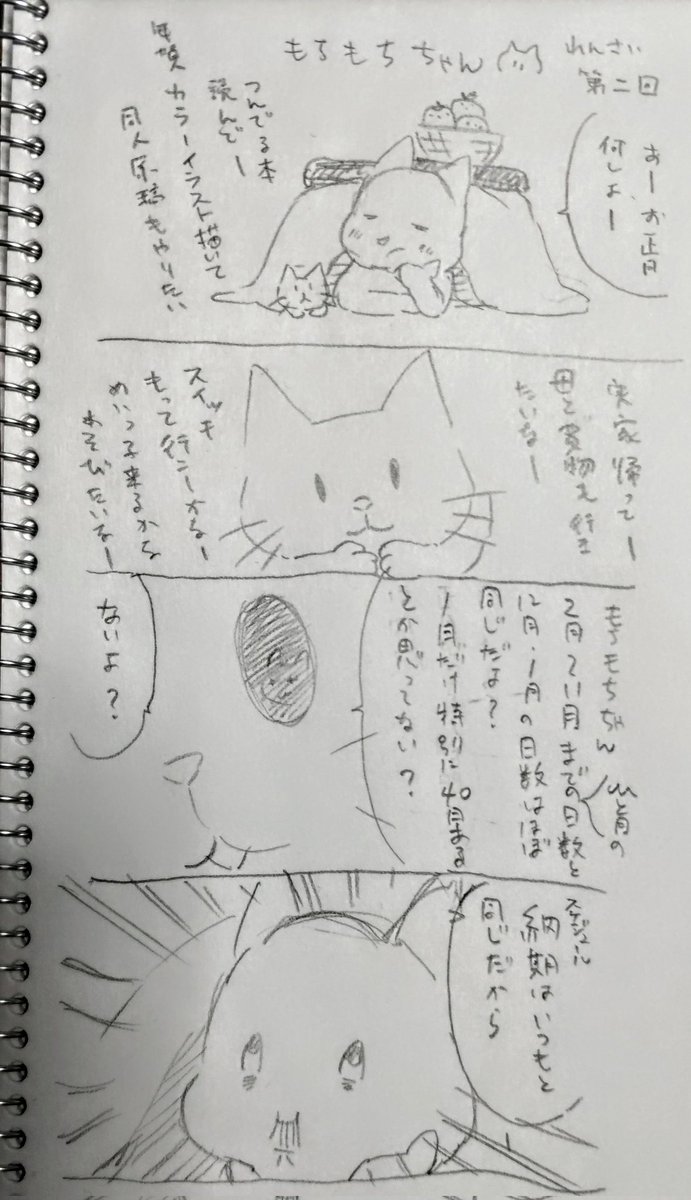 もちもちちゃん
れんさい
第二回
おーお正月
何しよー
つんでる本
読んでー
年賀カラーイラスト描いて
同人原稿もやりたい
実家帰ってー
母と買物も行き
たいなー
スイッチ
もって行こーかなー
めいっ子来るかな
あそびたいなー
もちもちちゃん
2月〜11月までの日数と
12月・1月の日数はほぼ
同じだよ?
1月だけ特別に40日ある
とか思ってない?
ないよ?
納期はいつもと
同じだから